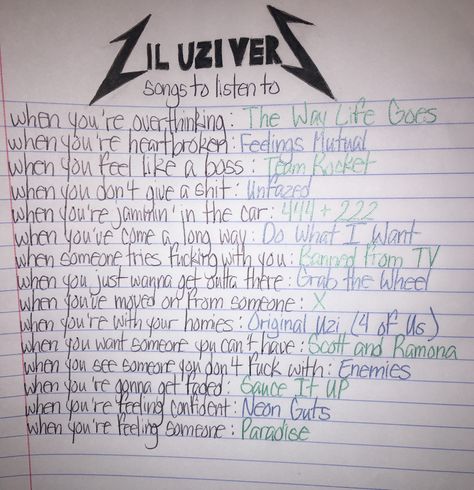 LIL UZI VERS
songs to listen to
when you're overthinking: The Way Life Goes
when you're heartbroken: Feelings Mutual
when you feel like a boss: Team Rocket
when you don't give a shit: Unfazed
when you're jammin' in the car: 444 + 222
when you've come a long way: Do What I Want
when someone tries fucking with you: Banned from TV
when you just wanna get outta there: Grab the Wheel
when you've moved on from someone: X
when you're with your homies: Original Uzi (4 of Us)
when you want someone you can't have: Scott and Ramona
when you see someone you don't fuck with: Enemies
when you're gonna get faded: Sauce It UP
when you're feeling confident: Neon Guts
when you're feeling someone: Paradise